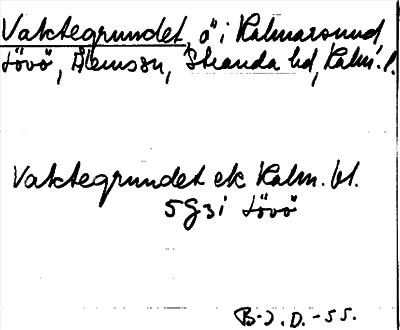 Vaktegrundet, ö i Kalmarsund,
Lövö, Ålemssn, Stranda hd, Kalm. l.
Vaktegrundet ek Kalm. bl.
5G3i Lövö
B-J. D. -55.